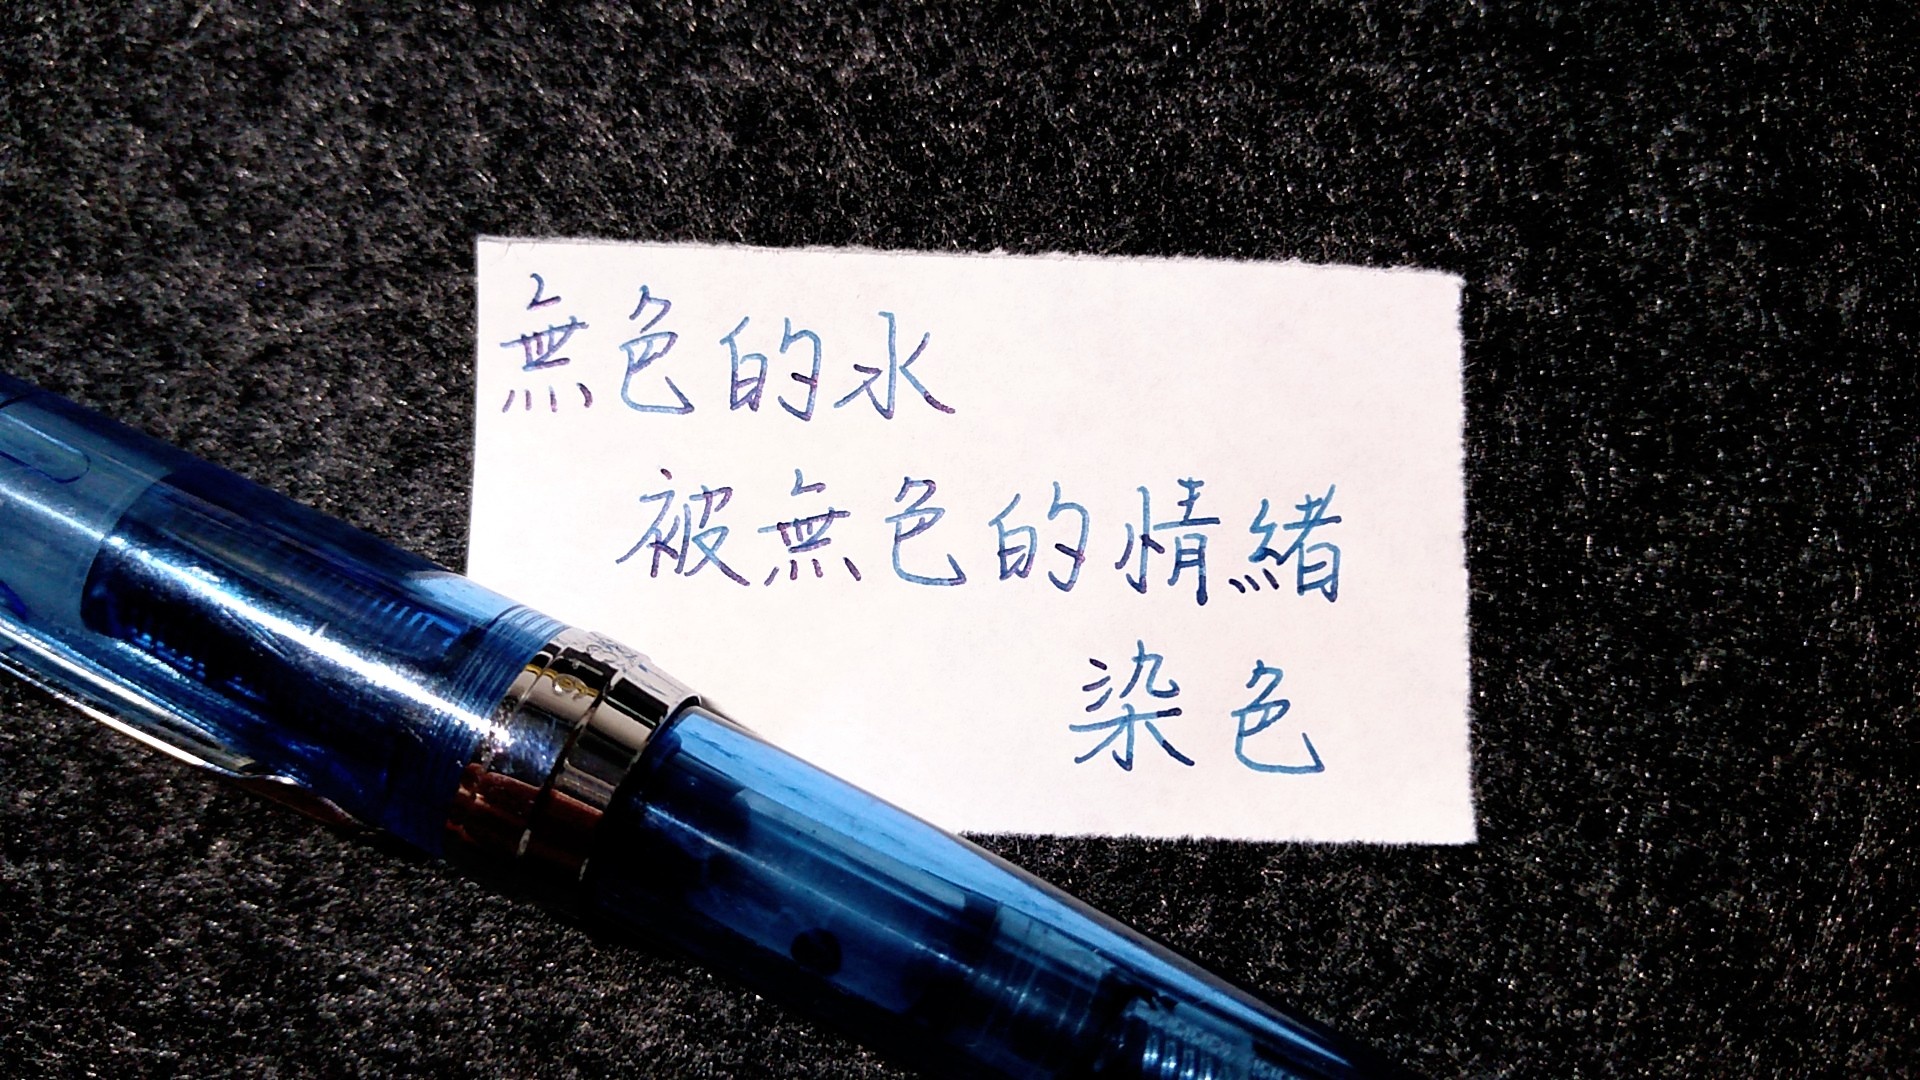 無色的水
被無色的情緒
染色